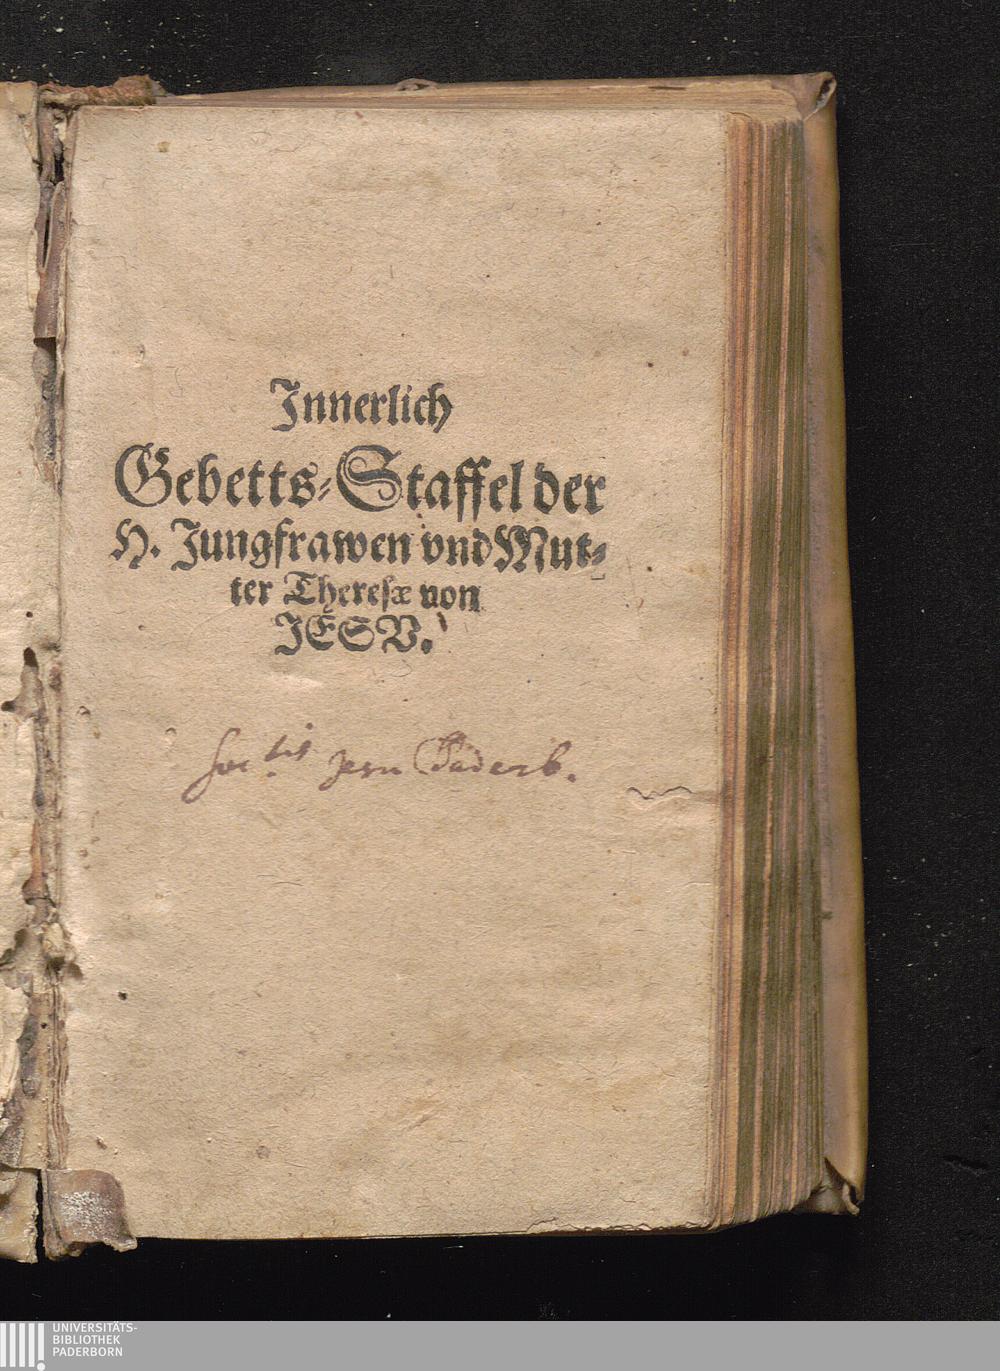 Innerlich
Gebetts-Staffel der
H. Jungfrawen vnd Mut-
ter Theresæ von
JESV.
Soc.tis Jesu Paderb.
UNIVERSITÄTS-
BIBLIOTHEK
PADERBORN